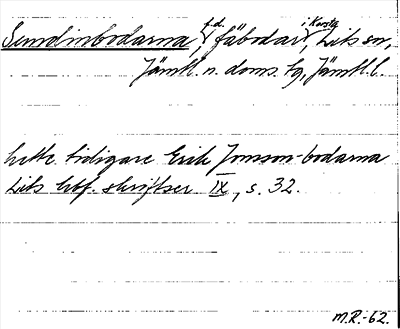 Sundinbodarna, f.d. fäbodar i Korsta, Lits sn,
Jämtl. n. doms. tg, Jämtl. l.
hette tidigare Erik Jonsson-bodarna
Lits hbf. skriftser IX, s. 32.
M.R.-62.